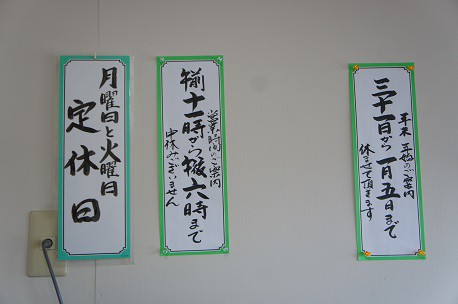 年末年始のご案内
三十一日から一月五日まで
休ませて頂きます
営業時間のご案内
前十一時から後六時まで
中休みございません
月曜日と火曜日
定休日